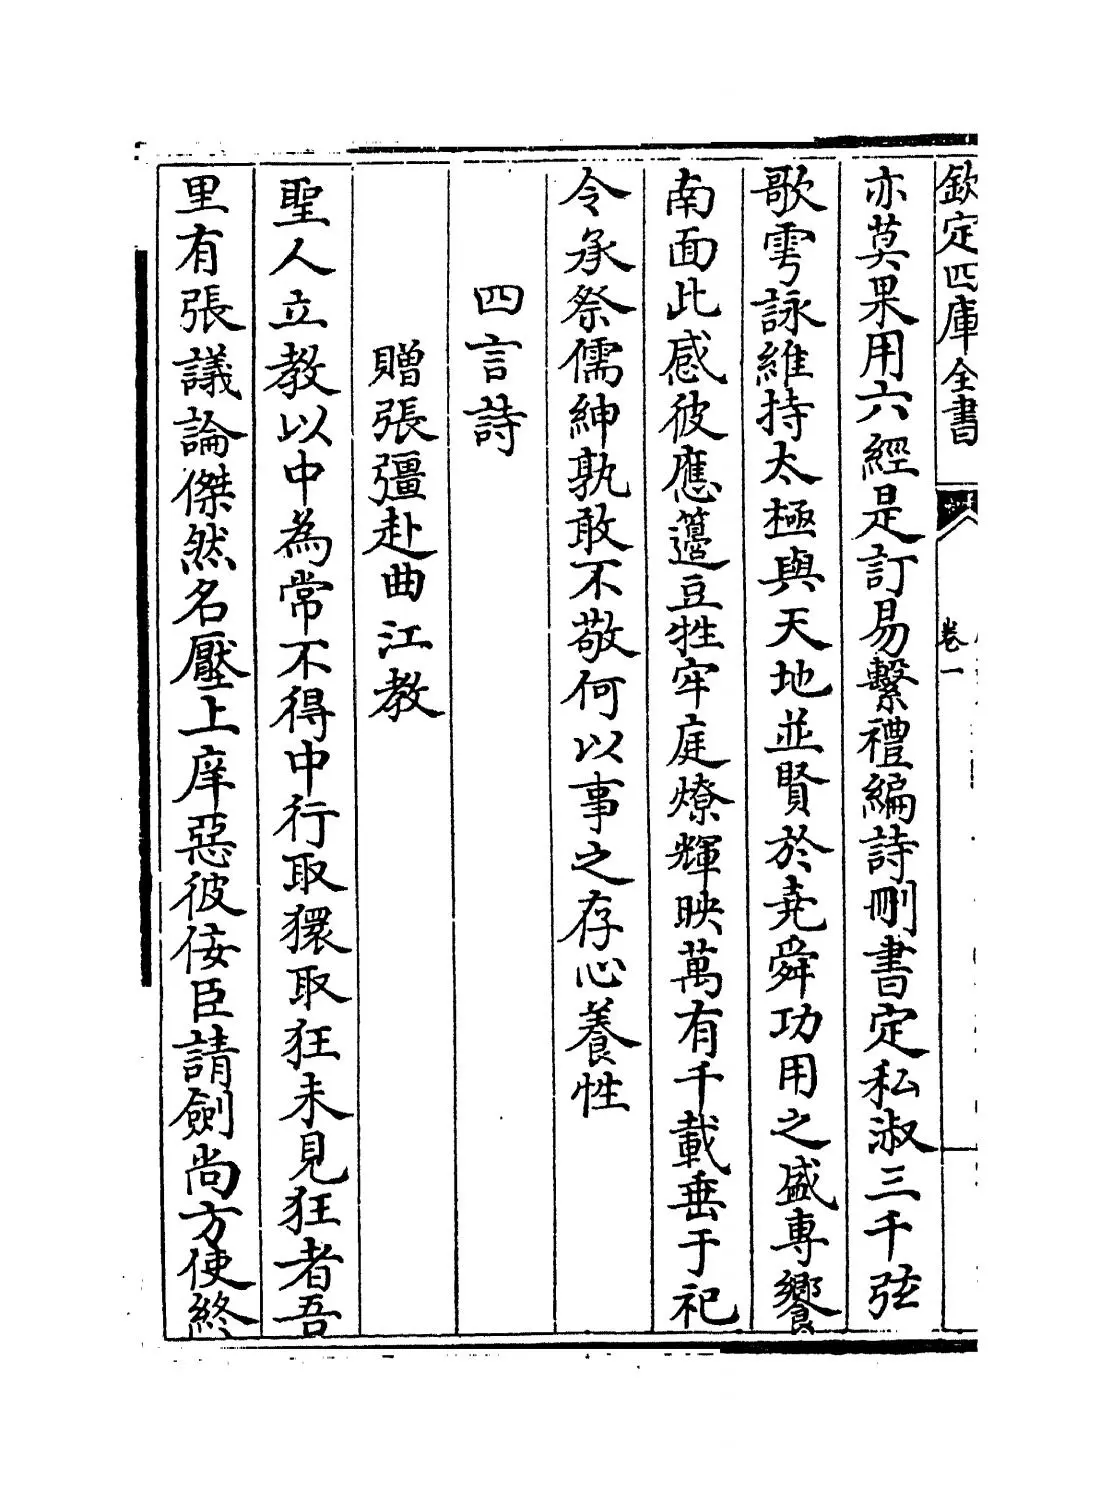 欽定四庫全書
卷一
亦莫果用六經是訂易繫禮編詩刪書定私淑三千弦
歌雩詠維持太極與天地並賢於堯舜功用之盛專饗
南面此感彼應籩豆牲牢庭燎輝映萬有千載垂于祀
令承祭儒紳孰敢不敬何以事之存心養性
四言詩
贈張彊赴曲江教
聖人立教以中為常不得中行取獧取狂未見狂者吾
里有張議論傑然名壓上庠惡彼佞臣請劍尚方使終